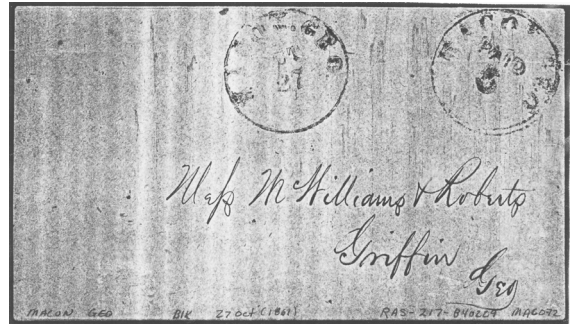 MACON GEO
27
MACON GEO
PAID
Mess McWilliams & Roberts
Griffin
Geo
MACON GEO BLK 27 Oct (1861) RAS-217-840209 MAG072